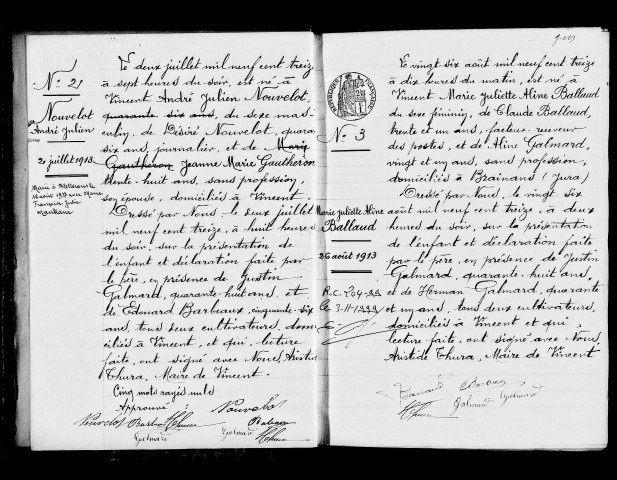 Nº 21
Nouvelot
André Julien
2 juillet 1913
Marié à
18 août 1937 avec Marie
Françoise Julie
Le deux juillet mil neuf cent treize
à sept heures du soir, est né à
Vincent André Julien Nouvelot,
quarante six ans, du sexe mas-
culin, de Désiré Nouvelot, quara
six ans, journalier, et de Marie
Gautheron Jeanne Marie Gautheron
trente-huit ans, sans profession,
son épouse, domiciliés à Vincent.
Dressé par Nous, le deux juillet
mil neuf cent treize, à huit heures
du soir, sur la présentation de
l'enfant et déclaration faite par
le père, en présence de Justin
Galmard, quarante-huit ans, et
de Edouard Barbeaux, cinquante-six
ans, tous deux cultivateurs, dom
ciliés à Vincent et qui, lecture
faite, ont signé avec Nous Aristid
Thura, Maire de Vincent.
Cinq mots rayés nuls
Approuvé :
Nouvelot
Nouvelot Barbeaux Thura
Galmard
Galmard Thura
Nº 3
Marie Juliette Aline
Ballaud
26 août 1913
R.C. 204-99
Le 3-11-1999
Le vingt six août mil neuf cent treize
à dix heures du matin, est née à
Vincent Marie Juliette Aline Ballaud
du sexe féminin, de Claude Ballaud,
trente et un ans, facteur-receveur
des postes, et de Aline Galmard,
vingt et un ans, sans profession,
domiciliés à Brainans (Jura)
Dressé par Nous, le vingt six
août mil neuf cent treize, à deux
heures du soir, sur la présentation
de l'enfant et déclaration faite
par le père, en présence de Justin
Galmard, quarante-huit ans,
et de Herman Galmard, quarante
et un ans, tous deux cultivateurs,
domiciliés à Vincent et qui,
lecture faite, ont signé avec Nous,
Aristide Thura, Maire de Vincent
Galmard Galmard
Thura